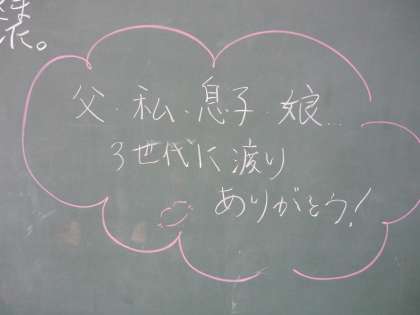 た。
父・私・息子・娘…
3世代に渡り
ありがとう!